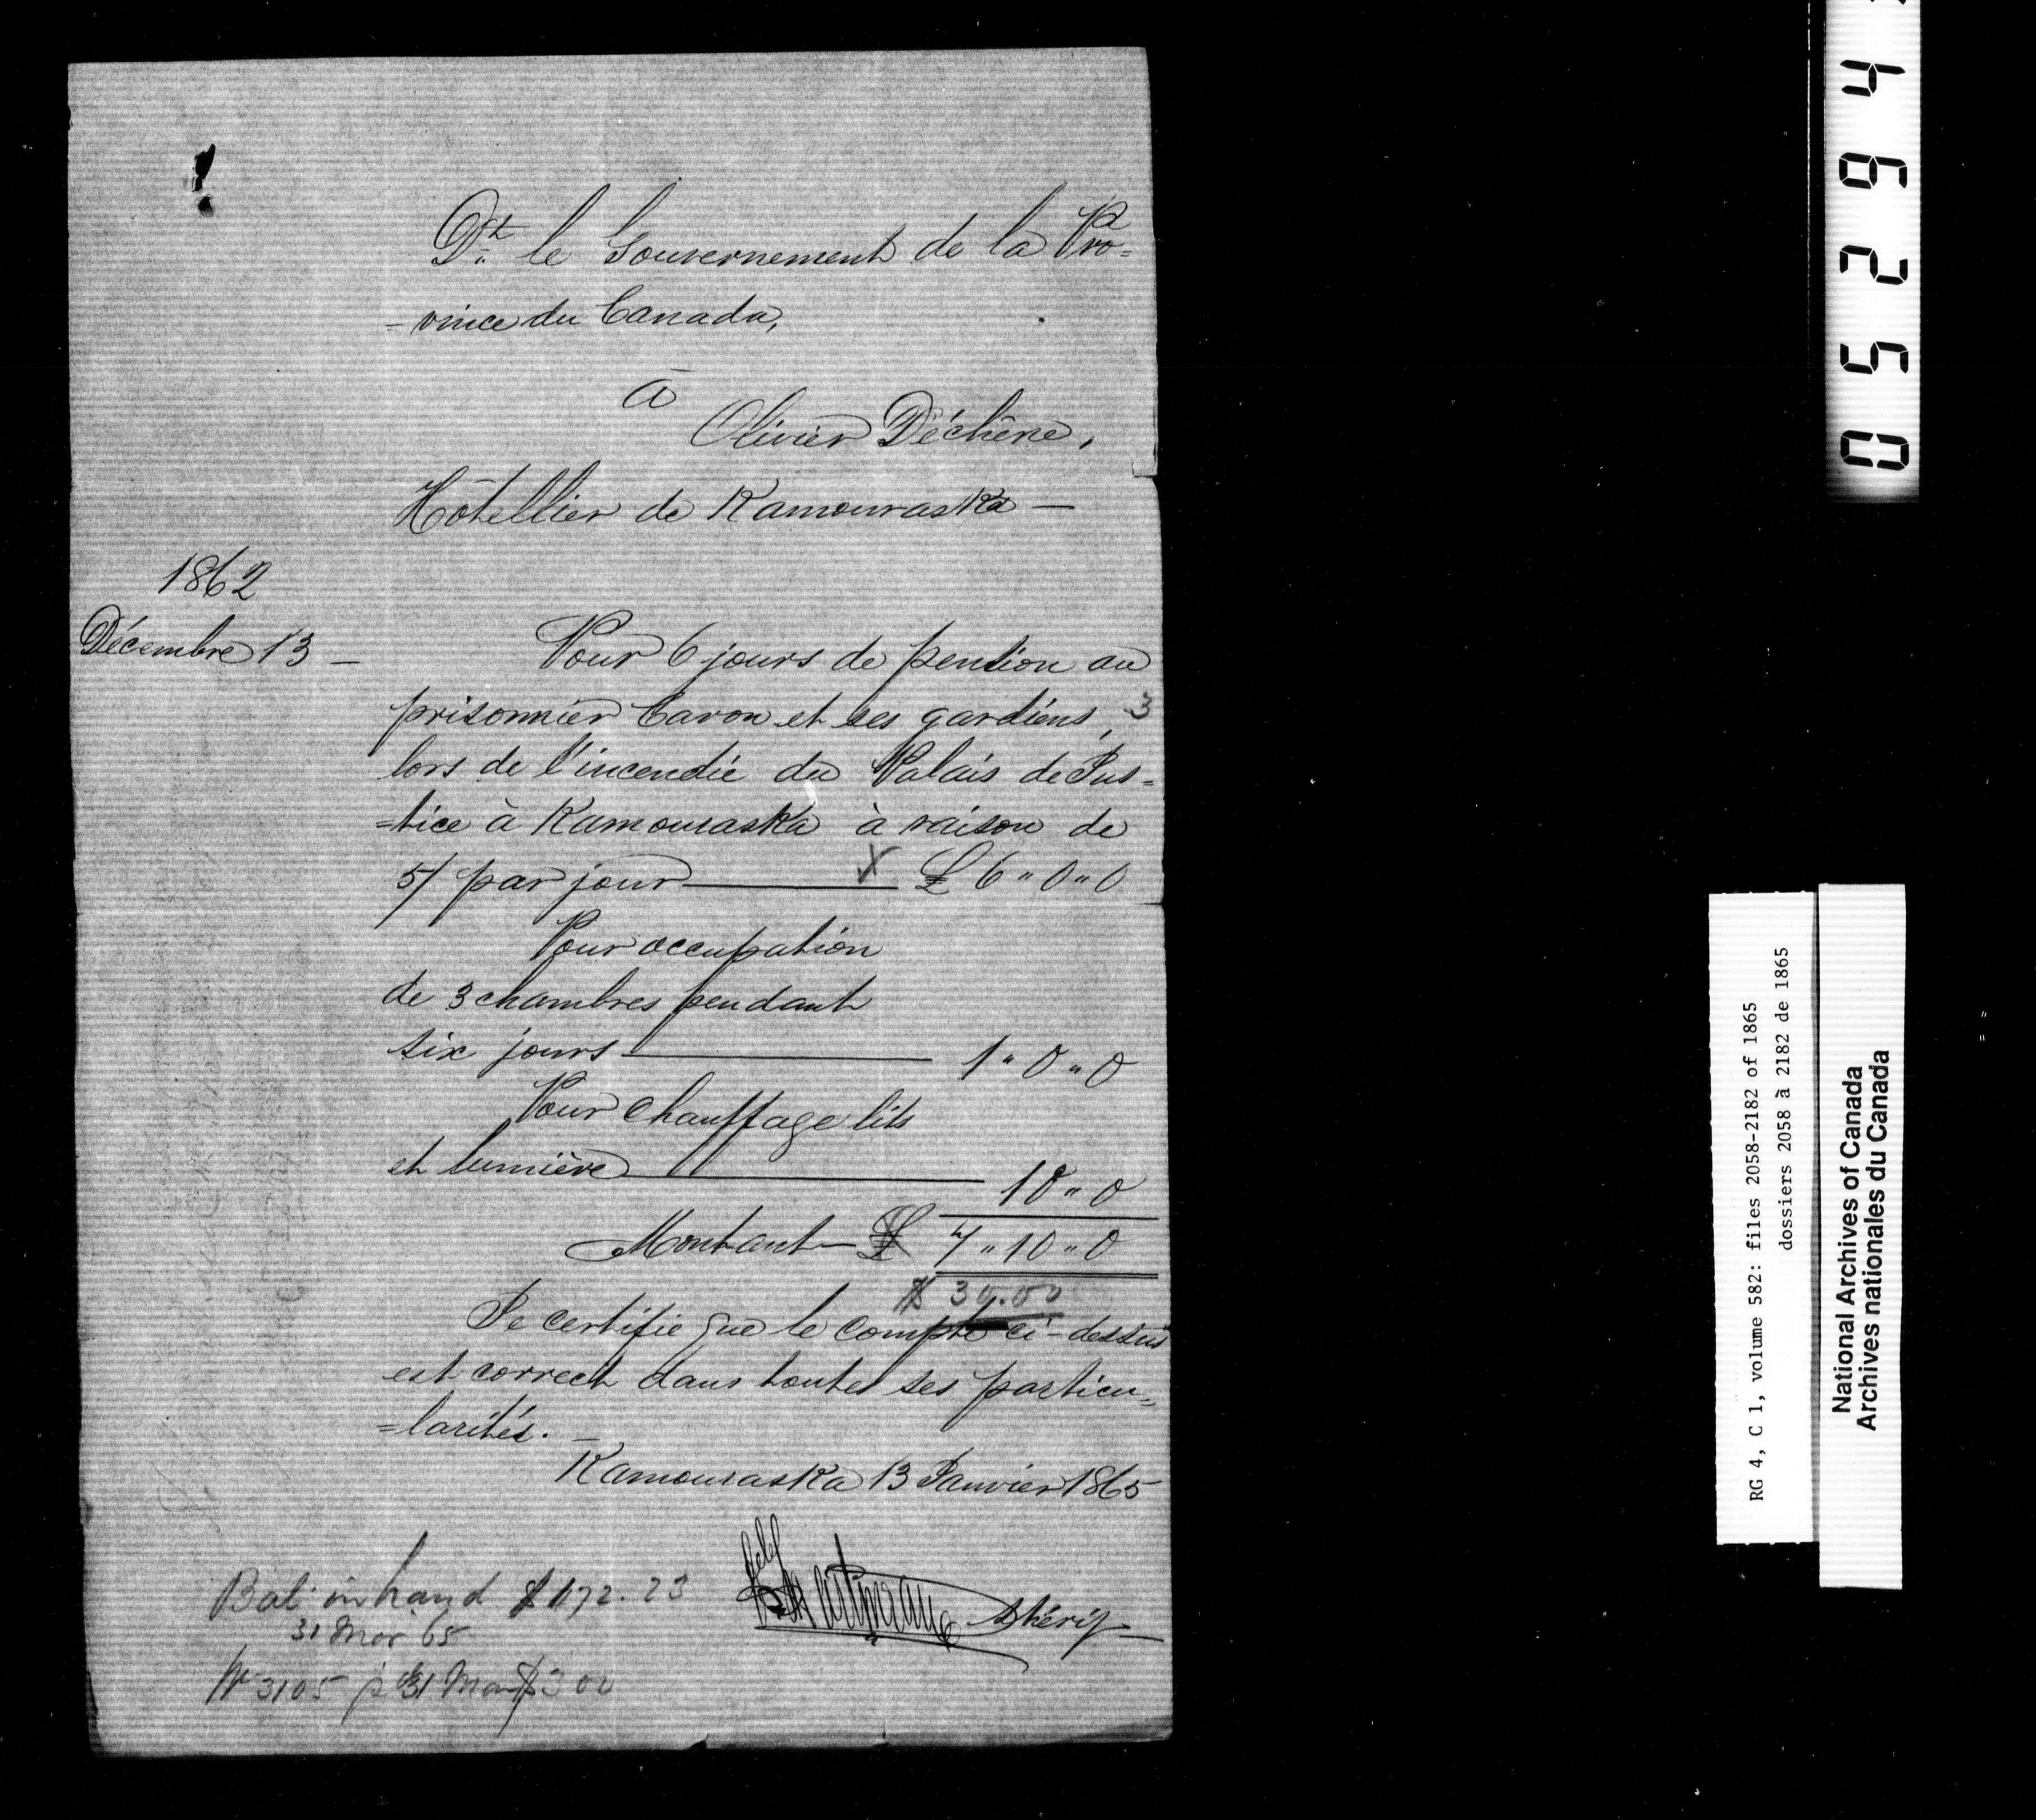 Dt. le Gouvernement de la Pro=
=vince du Canada,
à
Olivier Déchêne,
Hôtellier de Kamouraska —
1862
Décembre 13 —
Pour 6 jours de pention au
prisonnier Caron et ses gardiens, 3
lors de l'incendie du Palais de Jus=
=tice à Kamouraska à raison de
5/ par jour — X £ 6 " 0 " 0
Pour occupation
de 3 chambres pendant
six jours — 1 " 0 " 0
Pour chauffage lits
et lumière — 10 " 0
Montant — £ 7 " 10 " 0
$ 30.00
Je certifie que le compte ci-dessus
est correct dans toutes ses particu=
=larités. —
Kamouraska 13 Janvier 1865
Shérif —
Bal in hand $ 1172.23
31 Mar 65
W 3105 p 31 Mar $ 300
05294
RG 4, C 1, volume 582: files 2058-2182 of 1865
dossiers 2058 à 2182 de 1865
National Archives of Canada
Archives nationales du Canada